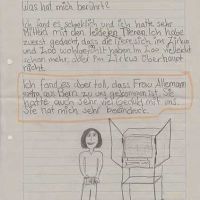 Was hat mich berührt?
Ich fand es schrecklich und ich hatte sehr
Mitleid mit den leidenden Tieren. Ich habe
zuerst gedacht, dass die Tiere sich im Zirkus
und Zoo wohlgefühlt haben. Im Zoo vielleicht
schon mehr, aber im Zirkus überhaupt
nicht.
Ich fand es aber toll, dass Frau Allemann
extra aus Bern zu uns gekommen ist. Sie
hatte auch sehr viel Geduld mit uns.
Sie hat mich sehr beeindruckt.